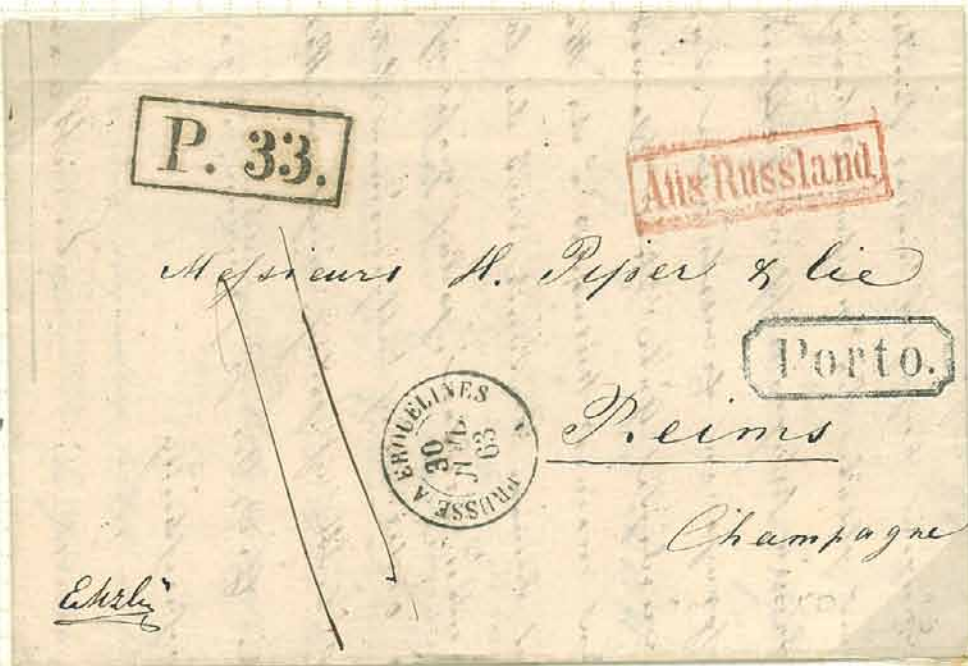 P. 33.
Aus Russland
Messieurs H. Piper & Cie
Porto.
PRUSSE A ERQUELINES
30
JANV.
63
Reims
Champagne